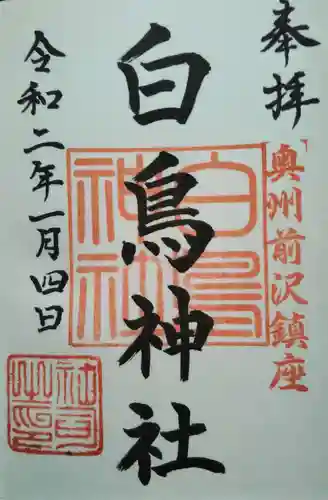 奉拝
奥州前沢鎮座
白鳥神社
白鳥神社
令和二年一月四日
社司之印